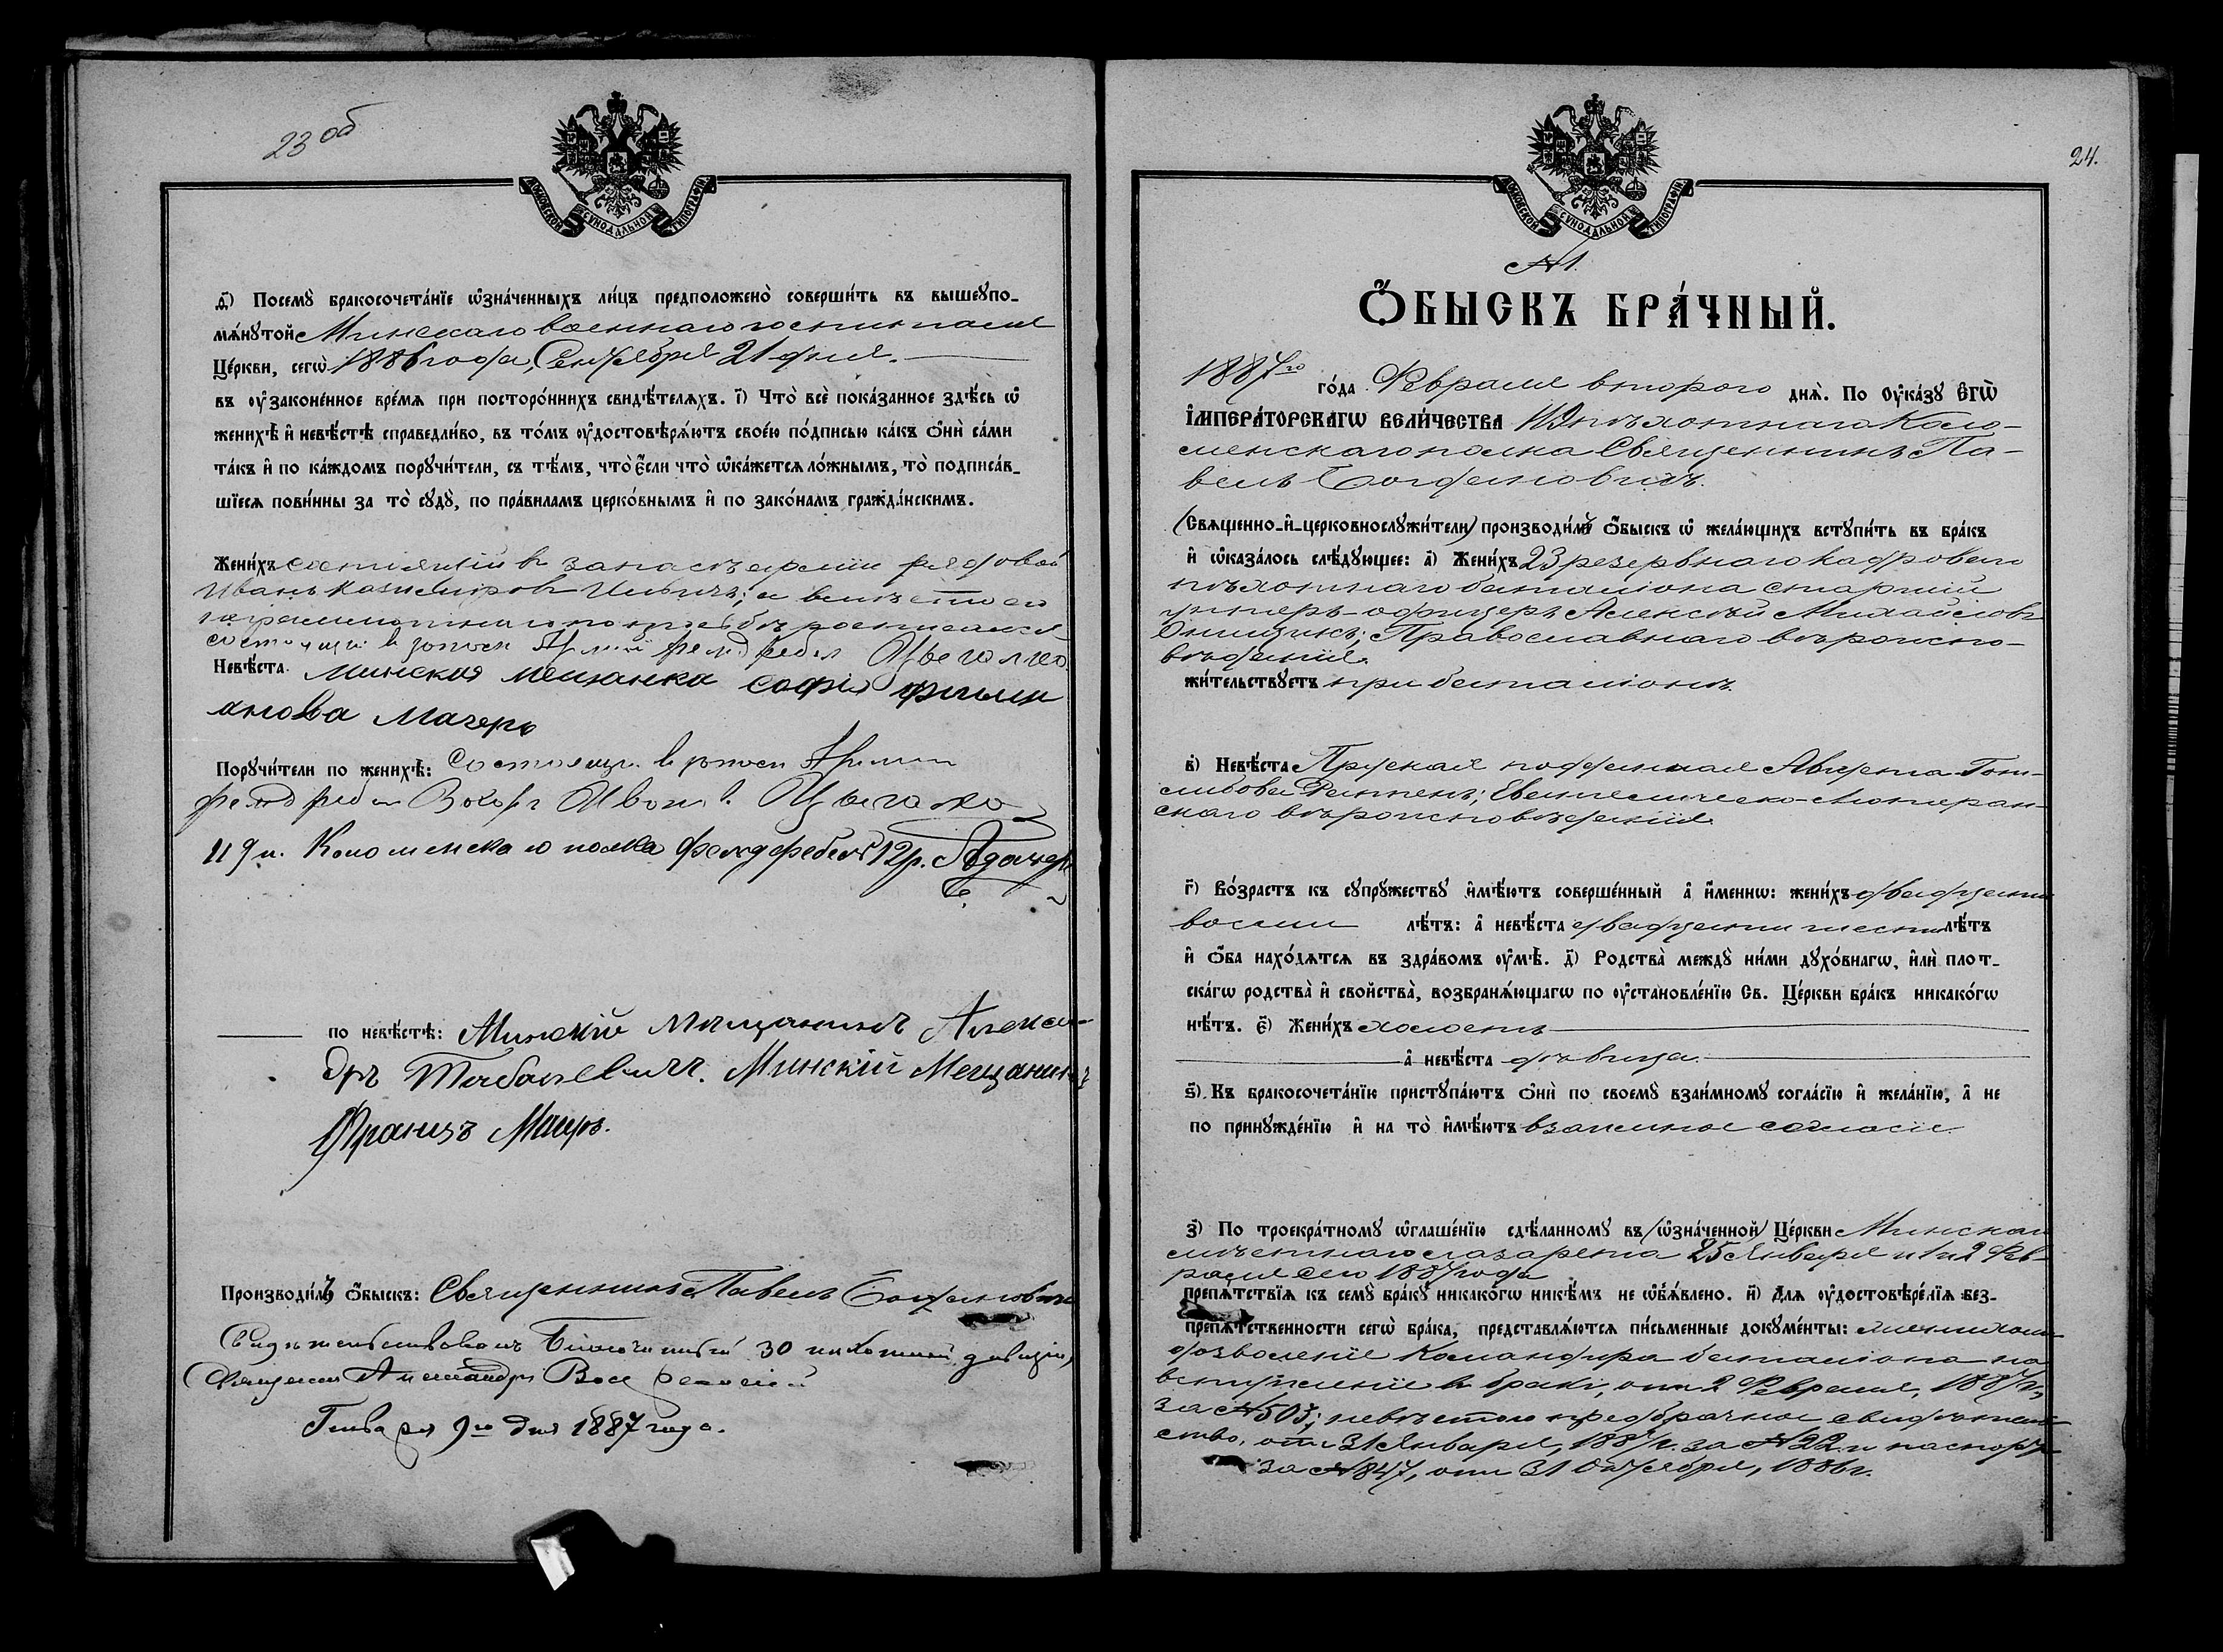 23 об
МОСКОВСКОЙ СѴНОДАЛЬНОЙ ТИПОГРАФІИ
д҃) Посемꙋ̀ бракосочета́нїе ѡ҆зна́ченныхъ ли́цъ предположено̀ соверши́ть въ вышеꙋпо-
мѧ́нꙋтой Минскаго военнаго госпиталя
Це́ркви, сегѡ̀ 1886 года, Сентября 21 дня.
въ ᲂу҆законе́нное вре́мѧ при посторо́ннихъ свидѣ́телѧхъ. і҃) Что̀ всѐ пока́занное здѣ́сь ѡ҆
женихѣ̀ и҆ невѣ́стѣ справедли́во, въ то́мъ ᲂу҆достовѣрѧ́ютъ свое́ю по́дписью ка́къ ѻ҆нѝ са́ми
та́къ и҆ по ка́ждомъ порꙋчи́тели, съ тѣ́мъ, что̀ є҆́сли что̀ ѡ҆ка́жетсѧ ло́жнымъ, то̀ подписа́в-
шїесѧ пови́нны за то̀ сꙋдꙋ̀, по пра́виламъ церко́внымъ и҆ по зако́намъ гражда́нскимъ.
Жени́хъ состоящій въ запасѣ арміи рядовой
Иванъ Казиміровъ; а вмѣсто его
неграмотнаго по просьбѣ росписался
состоящій в запасѣ Арміи фельдфебель
Невѣ́ста Минская мещанка Софія
Мачеръ
Порꙋчи́тели по женихѣ̀: Состоящи в запаси Армии
фельдфебель
119 п. Коломенскаго полка фельдфебель 12 р.
по невѣ́стѣ: Минскій Мѣщанинъ Алексан-
дръ Минскій Мещанинъ
Францъ
Производи́лъ ѻ҆́быскъ: Священникъ Павелъ Богдановичъ
Свидѣтельствовалъ Благочинный 30 пѣхотной дивизіи,
Священникъ Александръ
Генваря 9го дня 1887 года.
24.
МОСКОВСКОЙ СѴНОДАЛЬНОЙ ТИПОГРАФІИ
№ 1.
Ѻ҆́БЫСКЪ БРА́ЧНЫЙ.
1887го го́да Февраля второго днѧ̀. По Оу҆ка́зꙋ Є҆гѡ̀
І҆мпера́торскагѡ вели́чества Пѣхотнаго Коло-
менскаго полка Священникъ Па-
велъ Богдановичъ
(Свѧщенно-и҆-церковнослꙋжи́тели) производи́лъ ѻ҆́быскъ ѡ҆ жела́ющихъ встꙋпи́ть въ бра́къ
и҆ ѡ҆каза́лось слѣ́дꙋющее: а҃) Жени́хъ 23 резервнаго кадроваго
пѣхотнаго баталіона старшій
унтеръ-офицеръ Алексѣй Михайловъ
Онищикъ; Православнаго вѣроиспо-
вѣданія.
жи́тельствꙋетъ при баталіонѣ.
в҃) Невѣ́ста Прусская подданная Августа Гот-
либова; Евангелическо-Лютеран-
скаго вѣроисповѣданія.
г҃) Во́зрастъ къ сꙋпрꙋ́жествꙋ и҆мѣ́ютъ соверше́нный а҆ и҆́меннѡ: жени́хъ двадцати
восьми лѣ́тъ: а҆ невѣ́ста двадцати шести лѣ́тъ
и҆ ѻ҆́ба нахо́дѧтсѧ въ здра́вомъ ᲂу҆мѣ̀. д҃) Родства̀ междꙋ̀ ни́ми дꙋхо́внагѡ, и҆лѝ плот-
ска́гѡ родства̀ и҆ свойства̀, возбранѧ́ющагѡ по ᲂу҆становле́нїю Св. Це́ркви бра́къ никако́гѡ
нѣ́тъ. є҃) Жени́хъ холостъ
а҆ невѣ́ста дѣвица.
ѕ҃) Къ бракосочета́нїю пристꙋпа́ютъ ѻ҆нѝ по своемꙋ̀ взаи́мномꙋ согла́сїю и҆ жела́нїю, а҆ не
по принꙋжде́нїю и҆ на то̀ и҆мѣ́ютъ взаимное согласіе.
з҃) По троекра́тномꙋ ѡ҆глаше́нїю сдѣ́ланномꙋ въ (ѡ҆зна́ченной) Це́ркви Минскаго
мѣстнаго лазарета 25 Января и 1 и 2 Фев-
раля сего 1887 года
препѧ́тствїѧ къ семꙋ̀ бра́кꙋ никако́гѡ никѣ́мъ не ѡ҆бъѧ́влено. и҃) Длѧ ᲂу҆достовѣре́нїѧ без-
препѧ́тственности сегѡ̀ бра́ка, представлѧ́ютсѧ пи́сьменные докꙋме́нты: женихомъ
дозволеніе Командира баталіона на
вступленіе въ бракъ, отъ 2 Февраля, 1887 г.,
за № 503; невѣстою предбрачное свидѣтель-
ство, отъ 31 Января, 1887 г. за № 22 и паспортъ
за № 847, отъ 31 Октября, 1886 г.